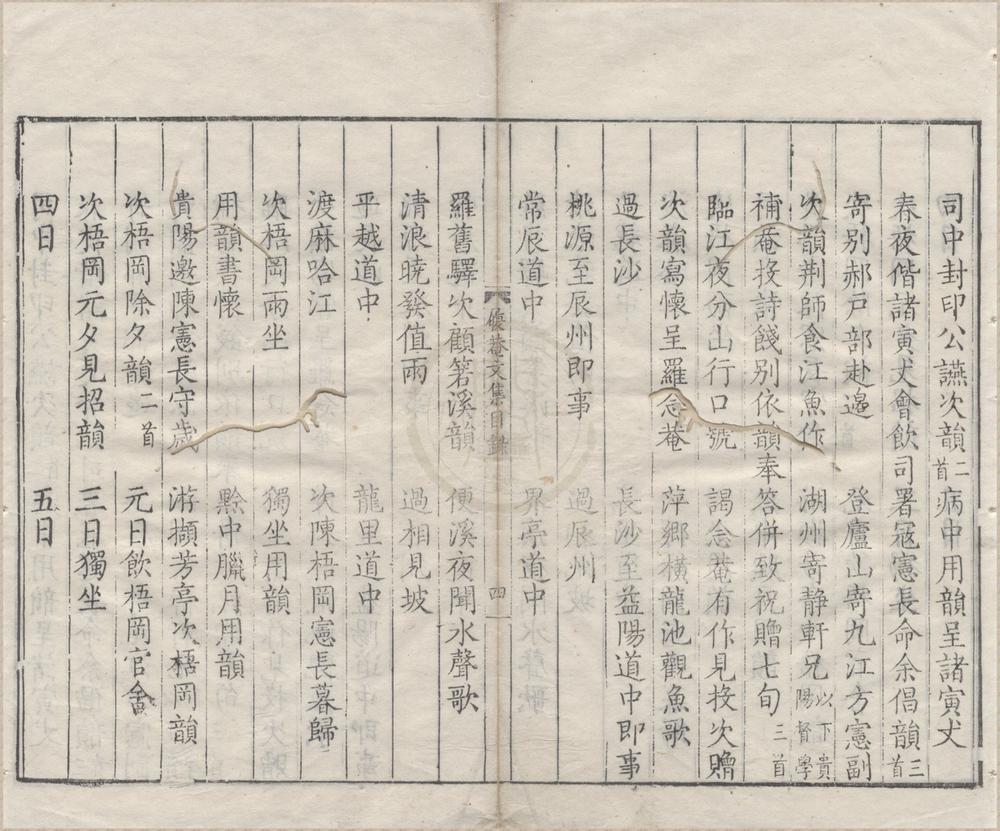 司中封印公讌次韻二首 病中用韻呈諸寅丈
春夜偕諸寅丈會飲司署冦憲長命余倡韻三首
寄别郝户部赴邉 登廬山寄九江方憲副
次韻荆師食江魚作 湖州寄静軒兄以下貴陽督學
補菴投詩餞别依韻奉答併致祝贈七旬三首
臨江夜分山行口號 謁念菴有作見投次贈
次韻寫懷呈羅念菴 萍鄉横龍池觀魚歌
過長沙 長沙至益陽道中即事
桃源至辰州即事 過辰州
常辰道中 界亭道中
優菴文集目錄 四
羅舊驛次顧箬溪韻 便溪夜聞水聲歌
清浪曉發值雨 過相見坡
平越道中 龍里道中
渡麻哈江 次陳梧岡憲長暮歸
次梧岡雨坐 獨坐用韻
用韻書懷 黔中臘月用韻
貴陽邀陳憲長守歲 游擷芳亭次梧岡韻
次梧岡除夕韻二首 元日飲梧岡官舍
次梧岡元夕見招韻 三日獨坐
四日 五日